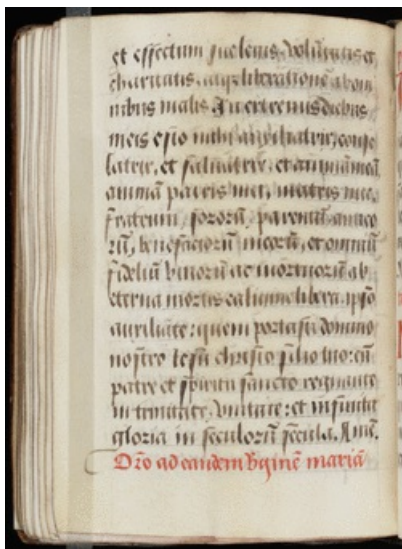 et effectum
charitatis, atqȝ liberationē ab om
nibus malis. In extremis diebus
meis esto mihi auxiliatrix, conso
latrix, et saluatrix, et animā meā,
animā patris mei, matris mee,
fratrum, sororū, parentū, amico
rū, benefactorū meorū, et omniū
fideliū viuorū ac mortuorū ab
eterna mortis caligine libera. ipso
auxiliāte: quem portasti domino
nostro iesu christo filio tuo: cū
patre et spiritu sancto regnante
in trinitate, vnitate: et infinita
gloria in seculorū secula. Amē.
Orō ad eandem virginē mariā